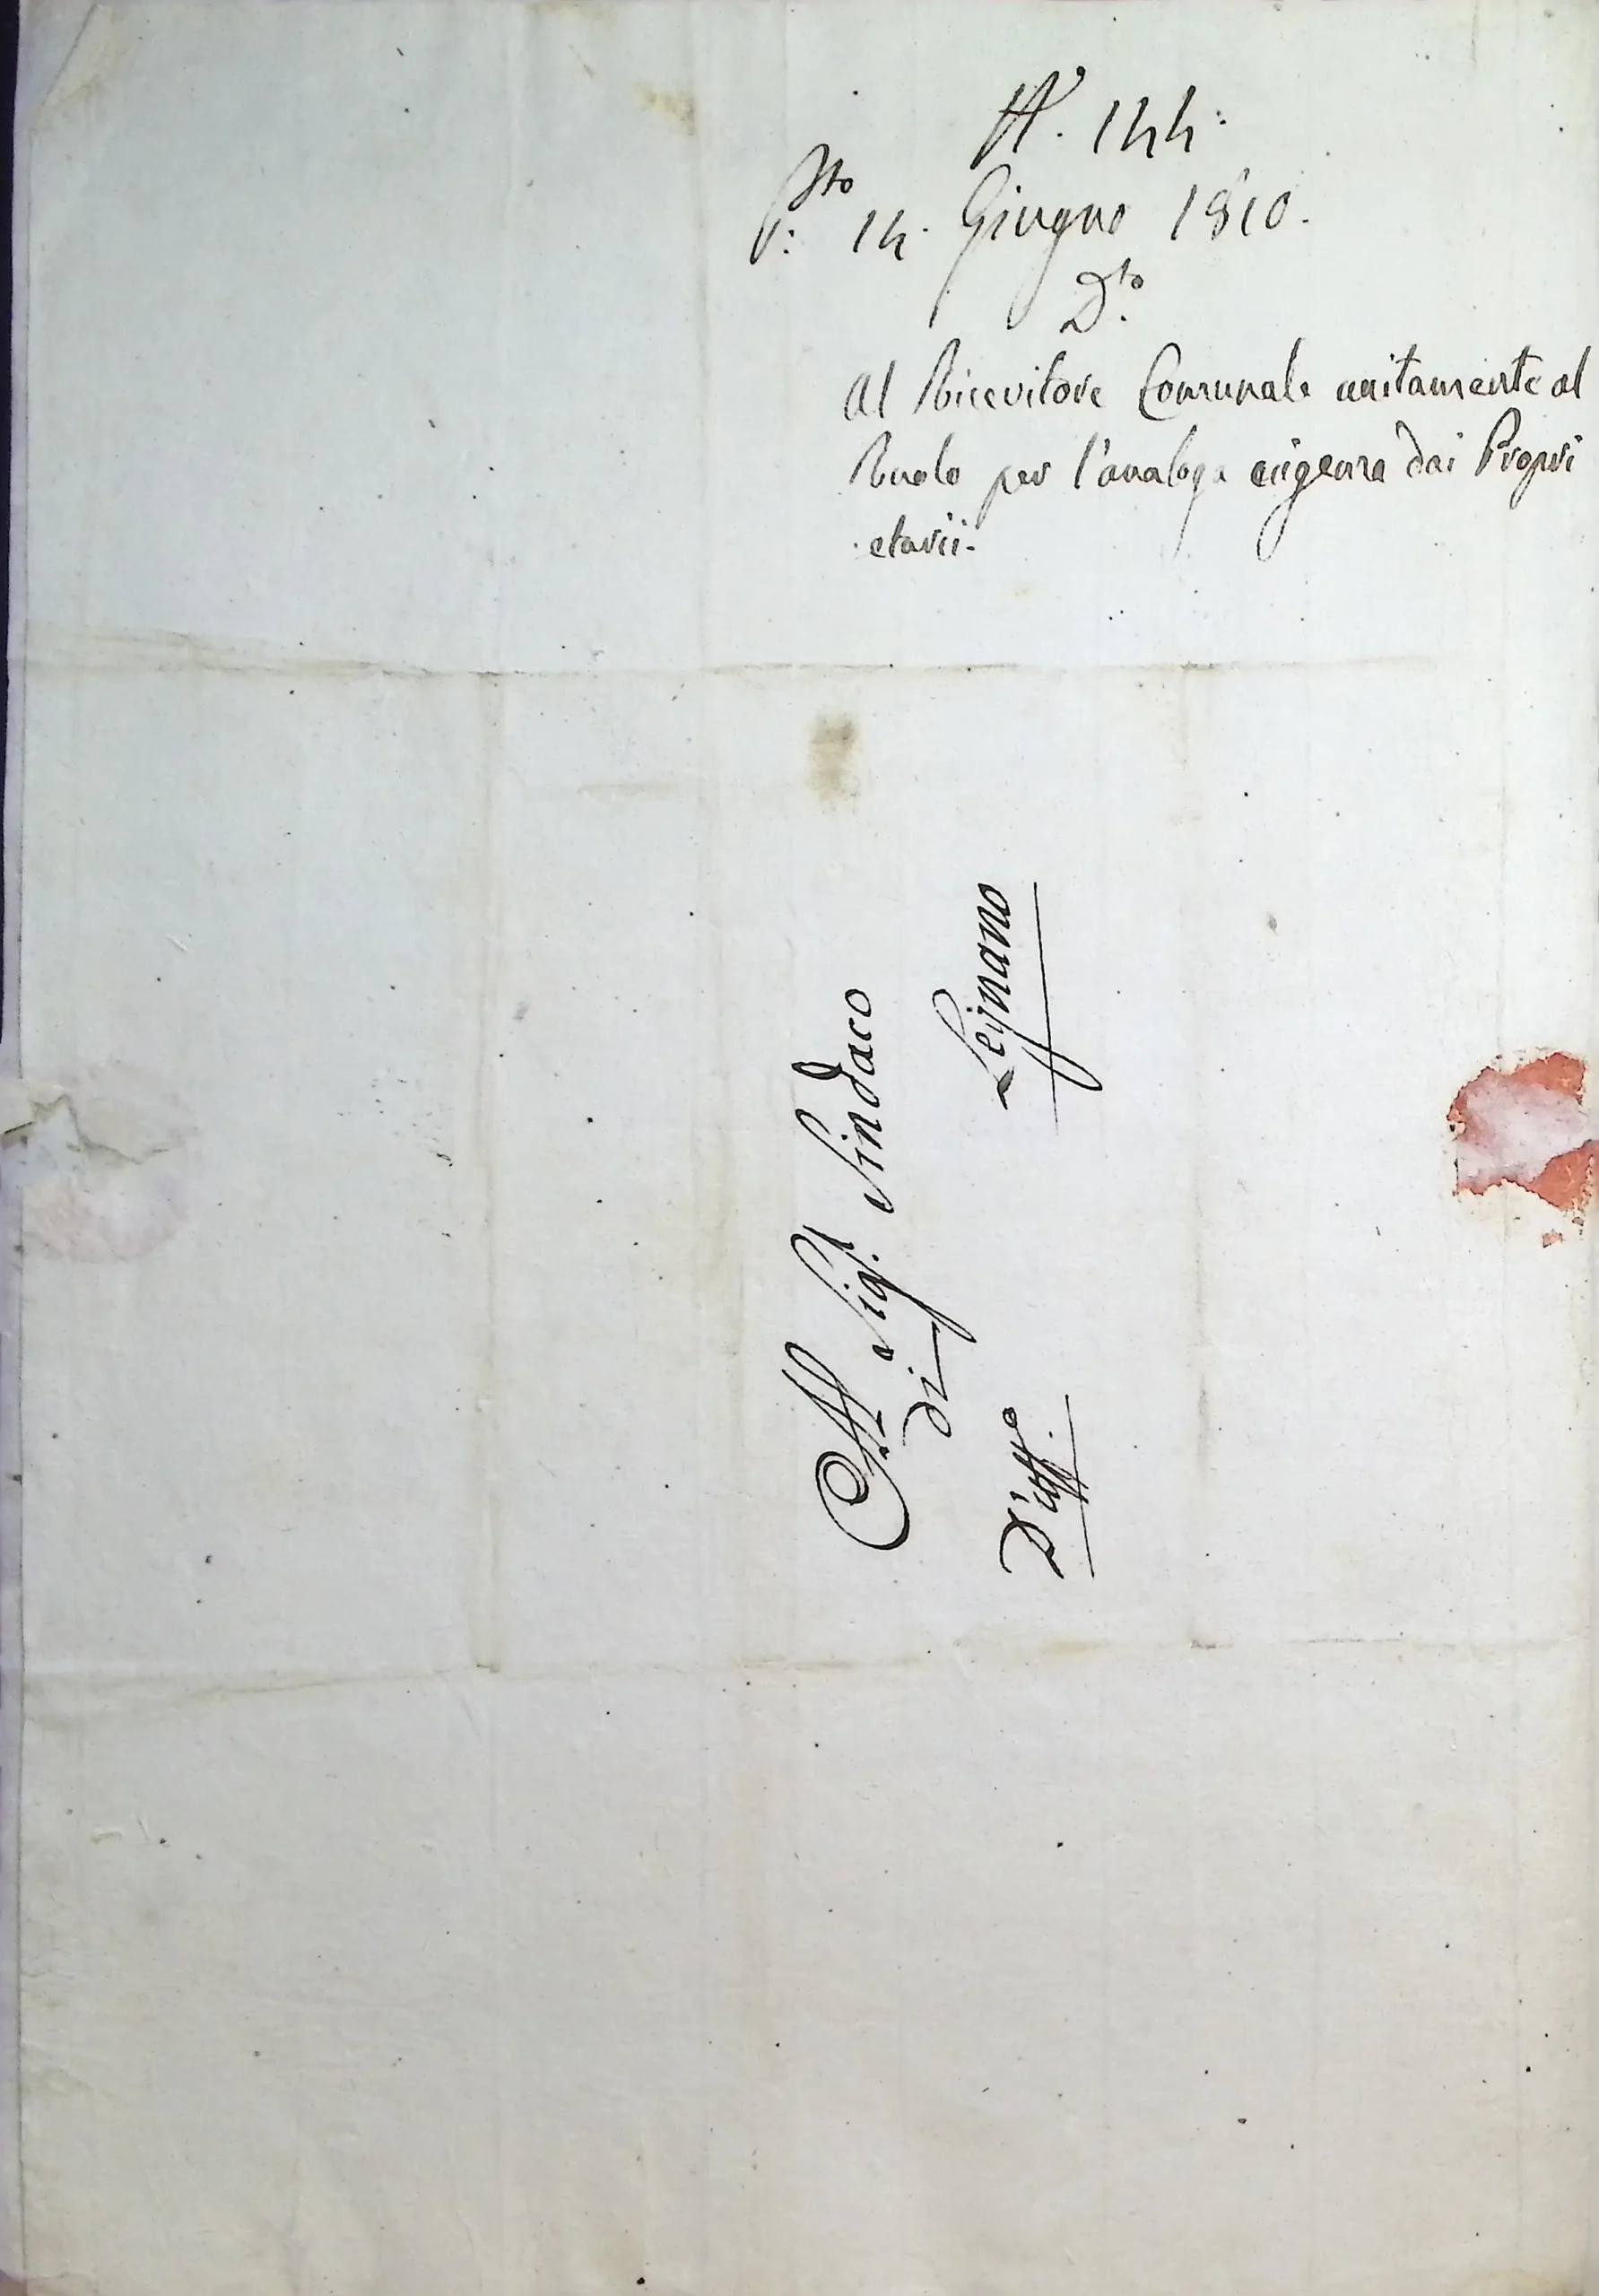 N.° 144:
P.sto 14. Giugno 1810.
D.to
Al Ricevitore Comunale unitamente al
Ruolo per l'analoga esigenza dai Propri
etarii.
Al Sig.r Sindaco
di
Legnano
D'uff.o